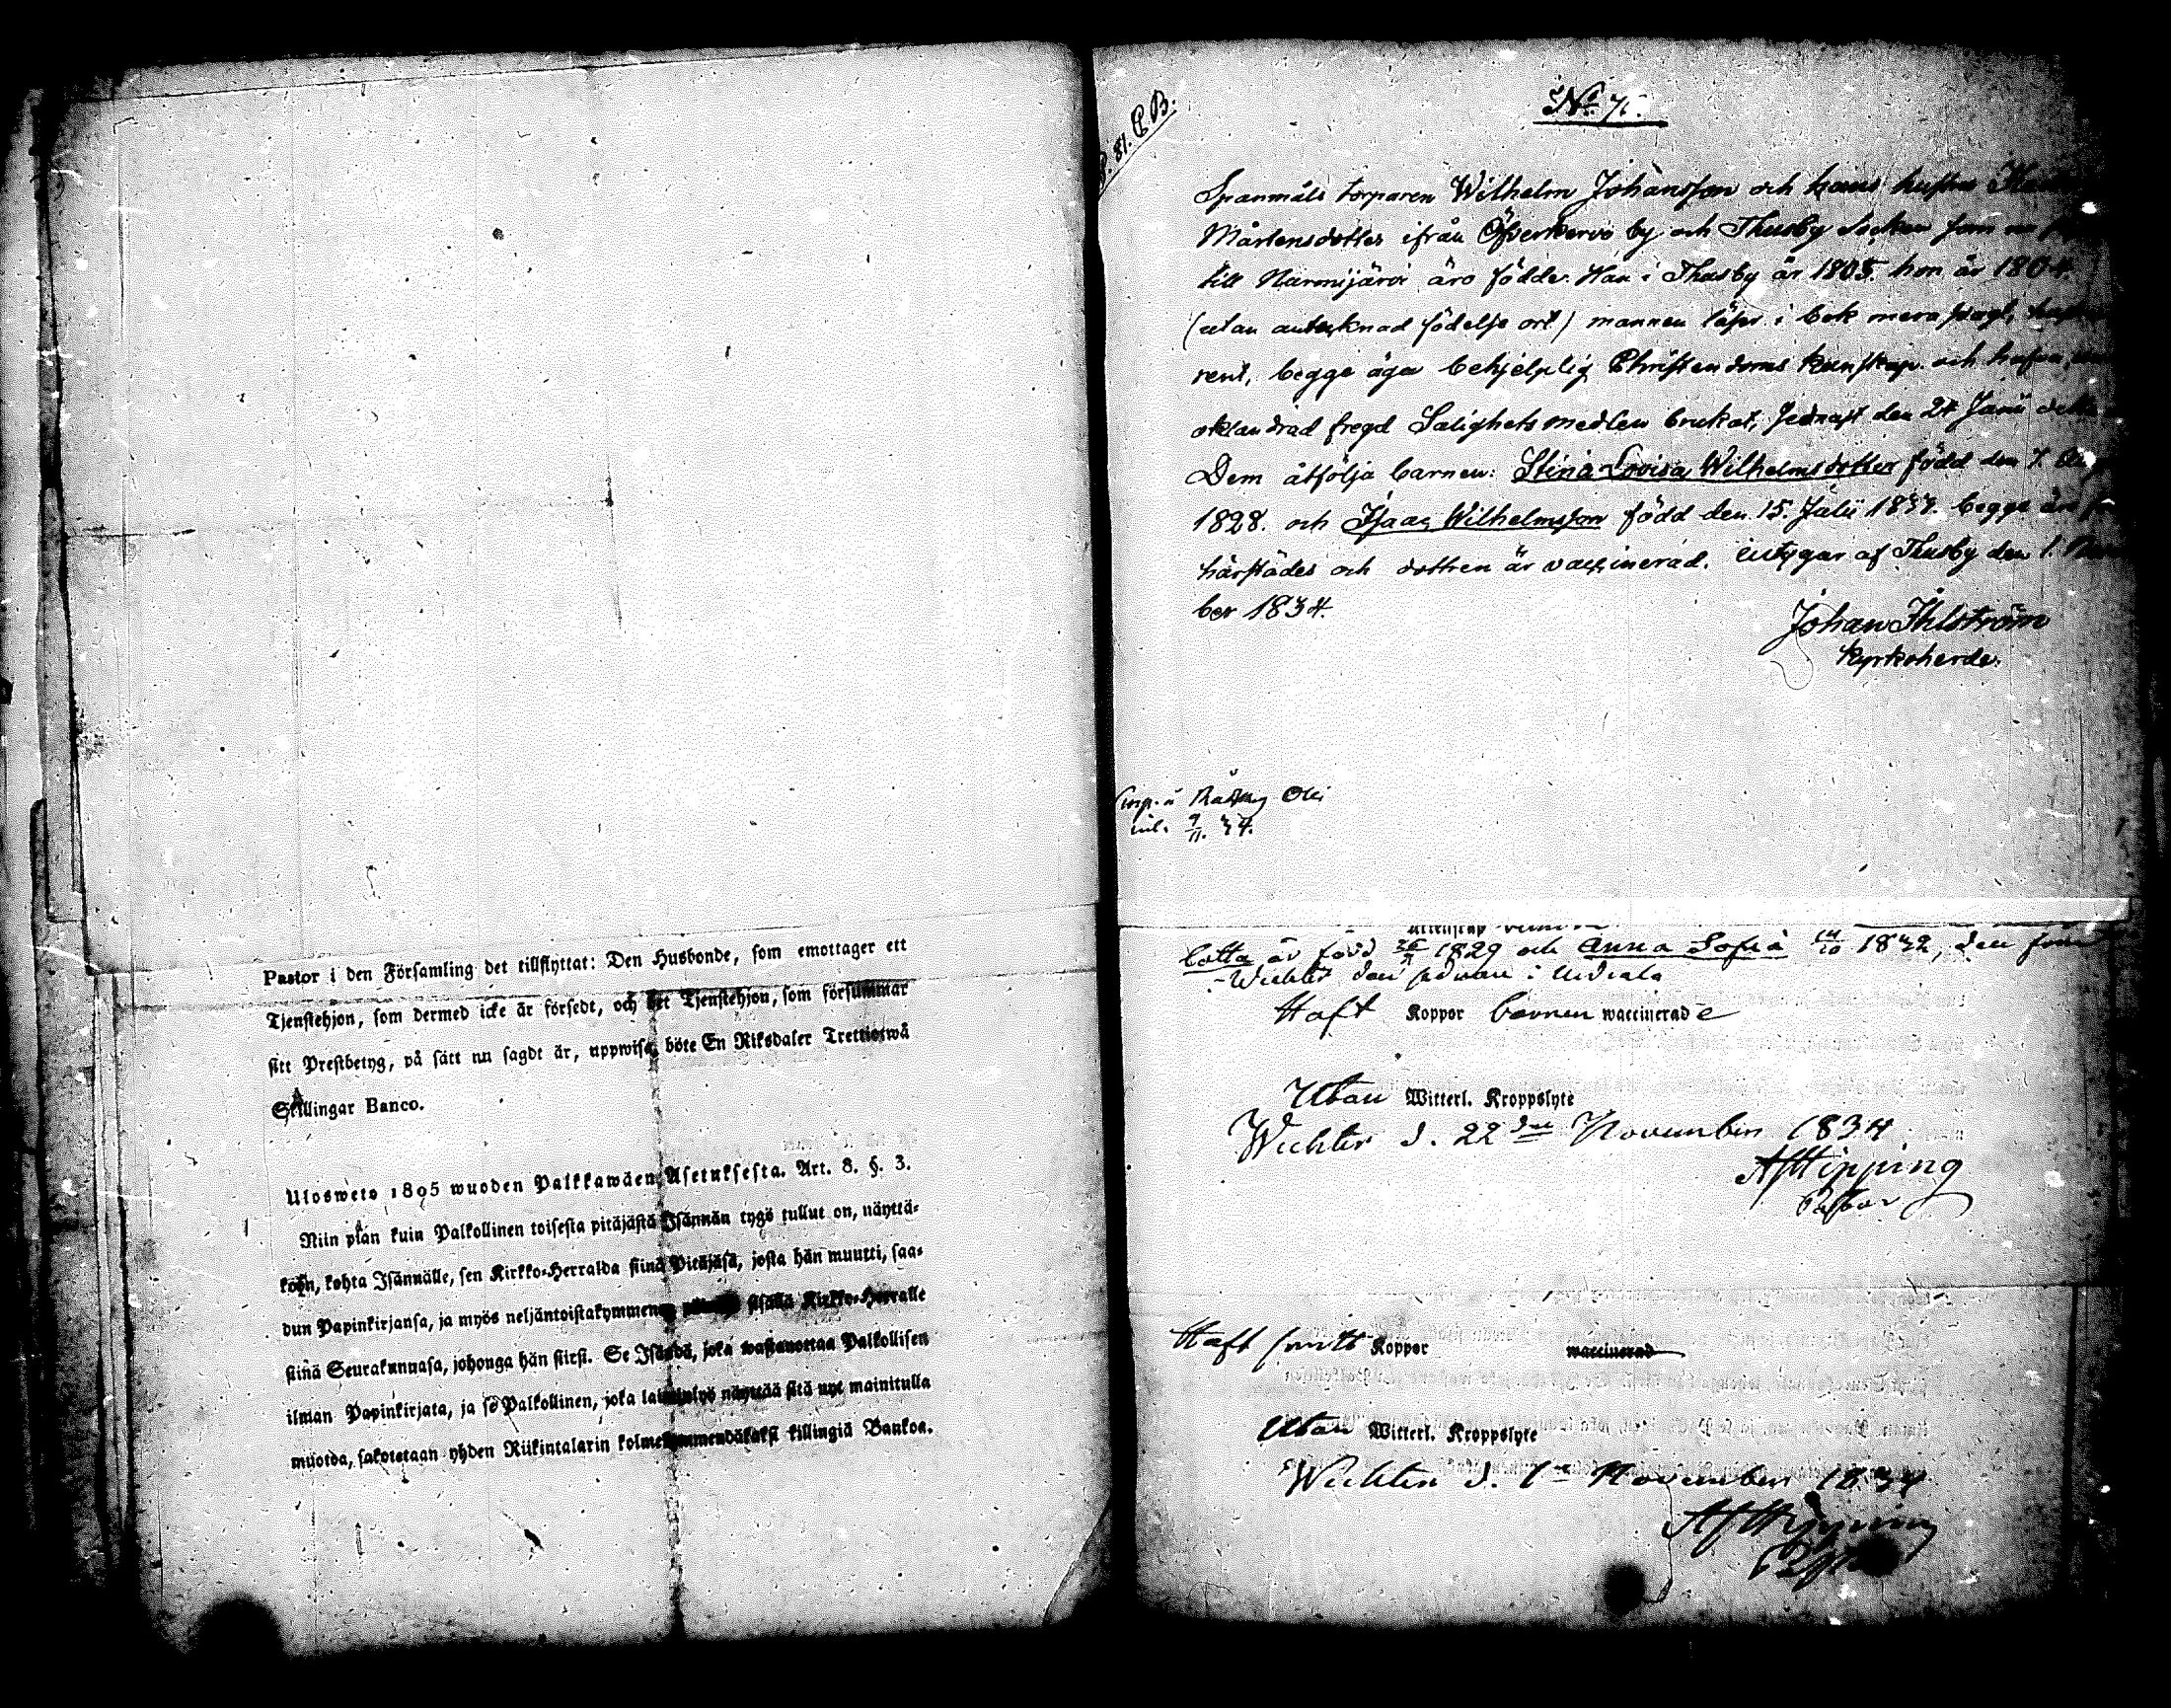 Pastor i den Församling det tillflyttat: Den Husbonde, som emottager ett
Tjenstehjon, som dermed icke är försedt, och det Tjenstehjon, som försummar
sitt Prestbetyg, på sätt nu sagdt är, uppwisa, böte En Riksdaler Trettiotwå
Skillingar Banco.
Ulosweto 1805 wuoden Palkkawäen Asetuksesta. Art. 8. §. 3.
Niin pian kuin Palkollinen toisesta pitäjästä Isännän tygö tullut on, näyttä-
köhn, kohta Isännälle, sen Kirkko-Herralda siinä Pitäjäsä, josta hän muutti, saa-
dun Papinkirjansa, ja myös neljäntoistakymmenen sisällä Kirkko-Herralle
siinä Seurakunnasa, johonga hän siirsi. Se Isändä, joka wastanottaa Palkollisen
ilman Papinkirjata, ja se Palkollinen, joka näyttää sitä nyt mainitulla
muotoa, sakotetaan yhden Riikintalarin kolmekymmendäkaksi killingiä Bankoa.
P. 81. C. B.
No 71.
Spanmåls torparen Wilhelm Johansson och hans hustru
Mårtensdotter ifrån Öfverkervo by och Thusby Socken som nu
till Nurmijärvi äro födde. Han i Thusby år 1805. hon år 1804.
(utan antecknad födelse ort) mannen läser i bok mera svagt,
rent, begge äga behjelplig Christendoms kunskap och hafva
oklandrad fregd Salighets medlen brukat, sednast den 24 Junii
Dem åtfölja barnen: Stina Lovisa Wilhelmsdotter född den 7.
1828. och Isaac Wilhelmsson född den 15. Julii 1833. begge äro
härstädes och dottren är vaccinerad. Betygar af Thusby den 1.
ber 1834.
Johan Ihlström
Kyrkoherde.
Torp. u.
inl. 9/11. 34.
Lotta är född 1829 och Anna Sofia 14/10 1832, den
Wichtis den sednare i
Haft Koppor barnen waccinerade
Utan Witterl. Kroppslyte
Wichtis d. 22dne November 1834
A F Hipping
Pastor
Haft smitt Koppor waccinerad
Utan Witterl. Kroppslyte
Wichtis d. 1 November 1834
A F Hipping